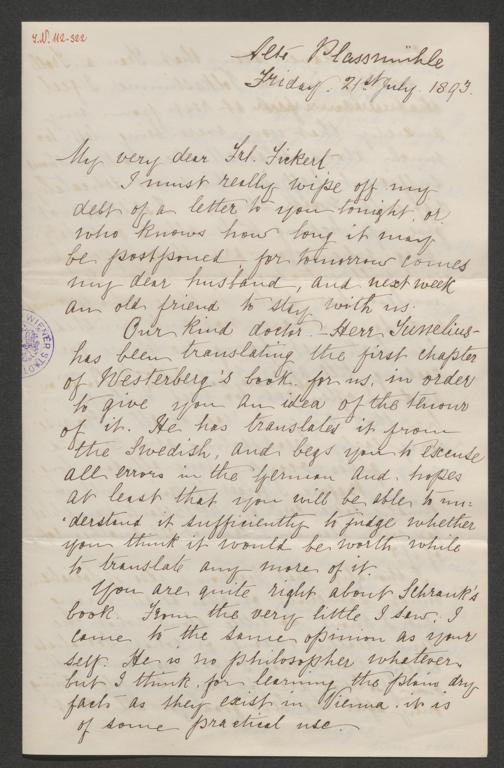 I.N. 112-322
Alte Plassmühle
Friday. 21st July 1893.
My very dear Frl. Fickert
I must really wipe off my
debt of a letter to you tonight, or
who knows how long it may
be postponed, for tomorrow comes
my dear husband, and next week
an old friend to stay with us.
Our kind doctor - Herr
has been translating the first chapter
of Westerberg's book for us, in order
to give you an idea of the tenour
of it. He has translated it from
the Swedish, and begs you to excuse
all errors in the German and hopes
at least that you will be able to un=
derstand it sufficiently to judge whether
you think it would be worth while
to translate any more of it.
You are quite right about Schrank's
book. From the very little I saw, I
came to the same opinion as your
self. He is no philosopher whatever,
but I think for learning the plain dry
facts as they exist in Vienna it is
of some practical use.
WIENER STADT